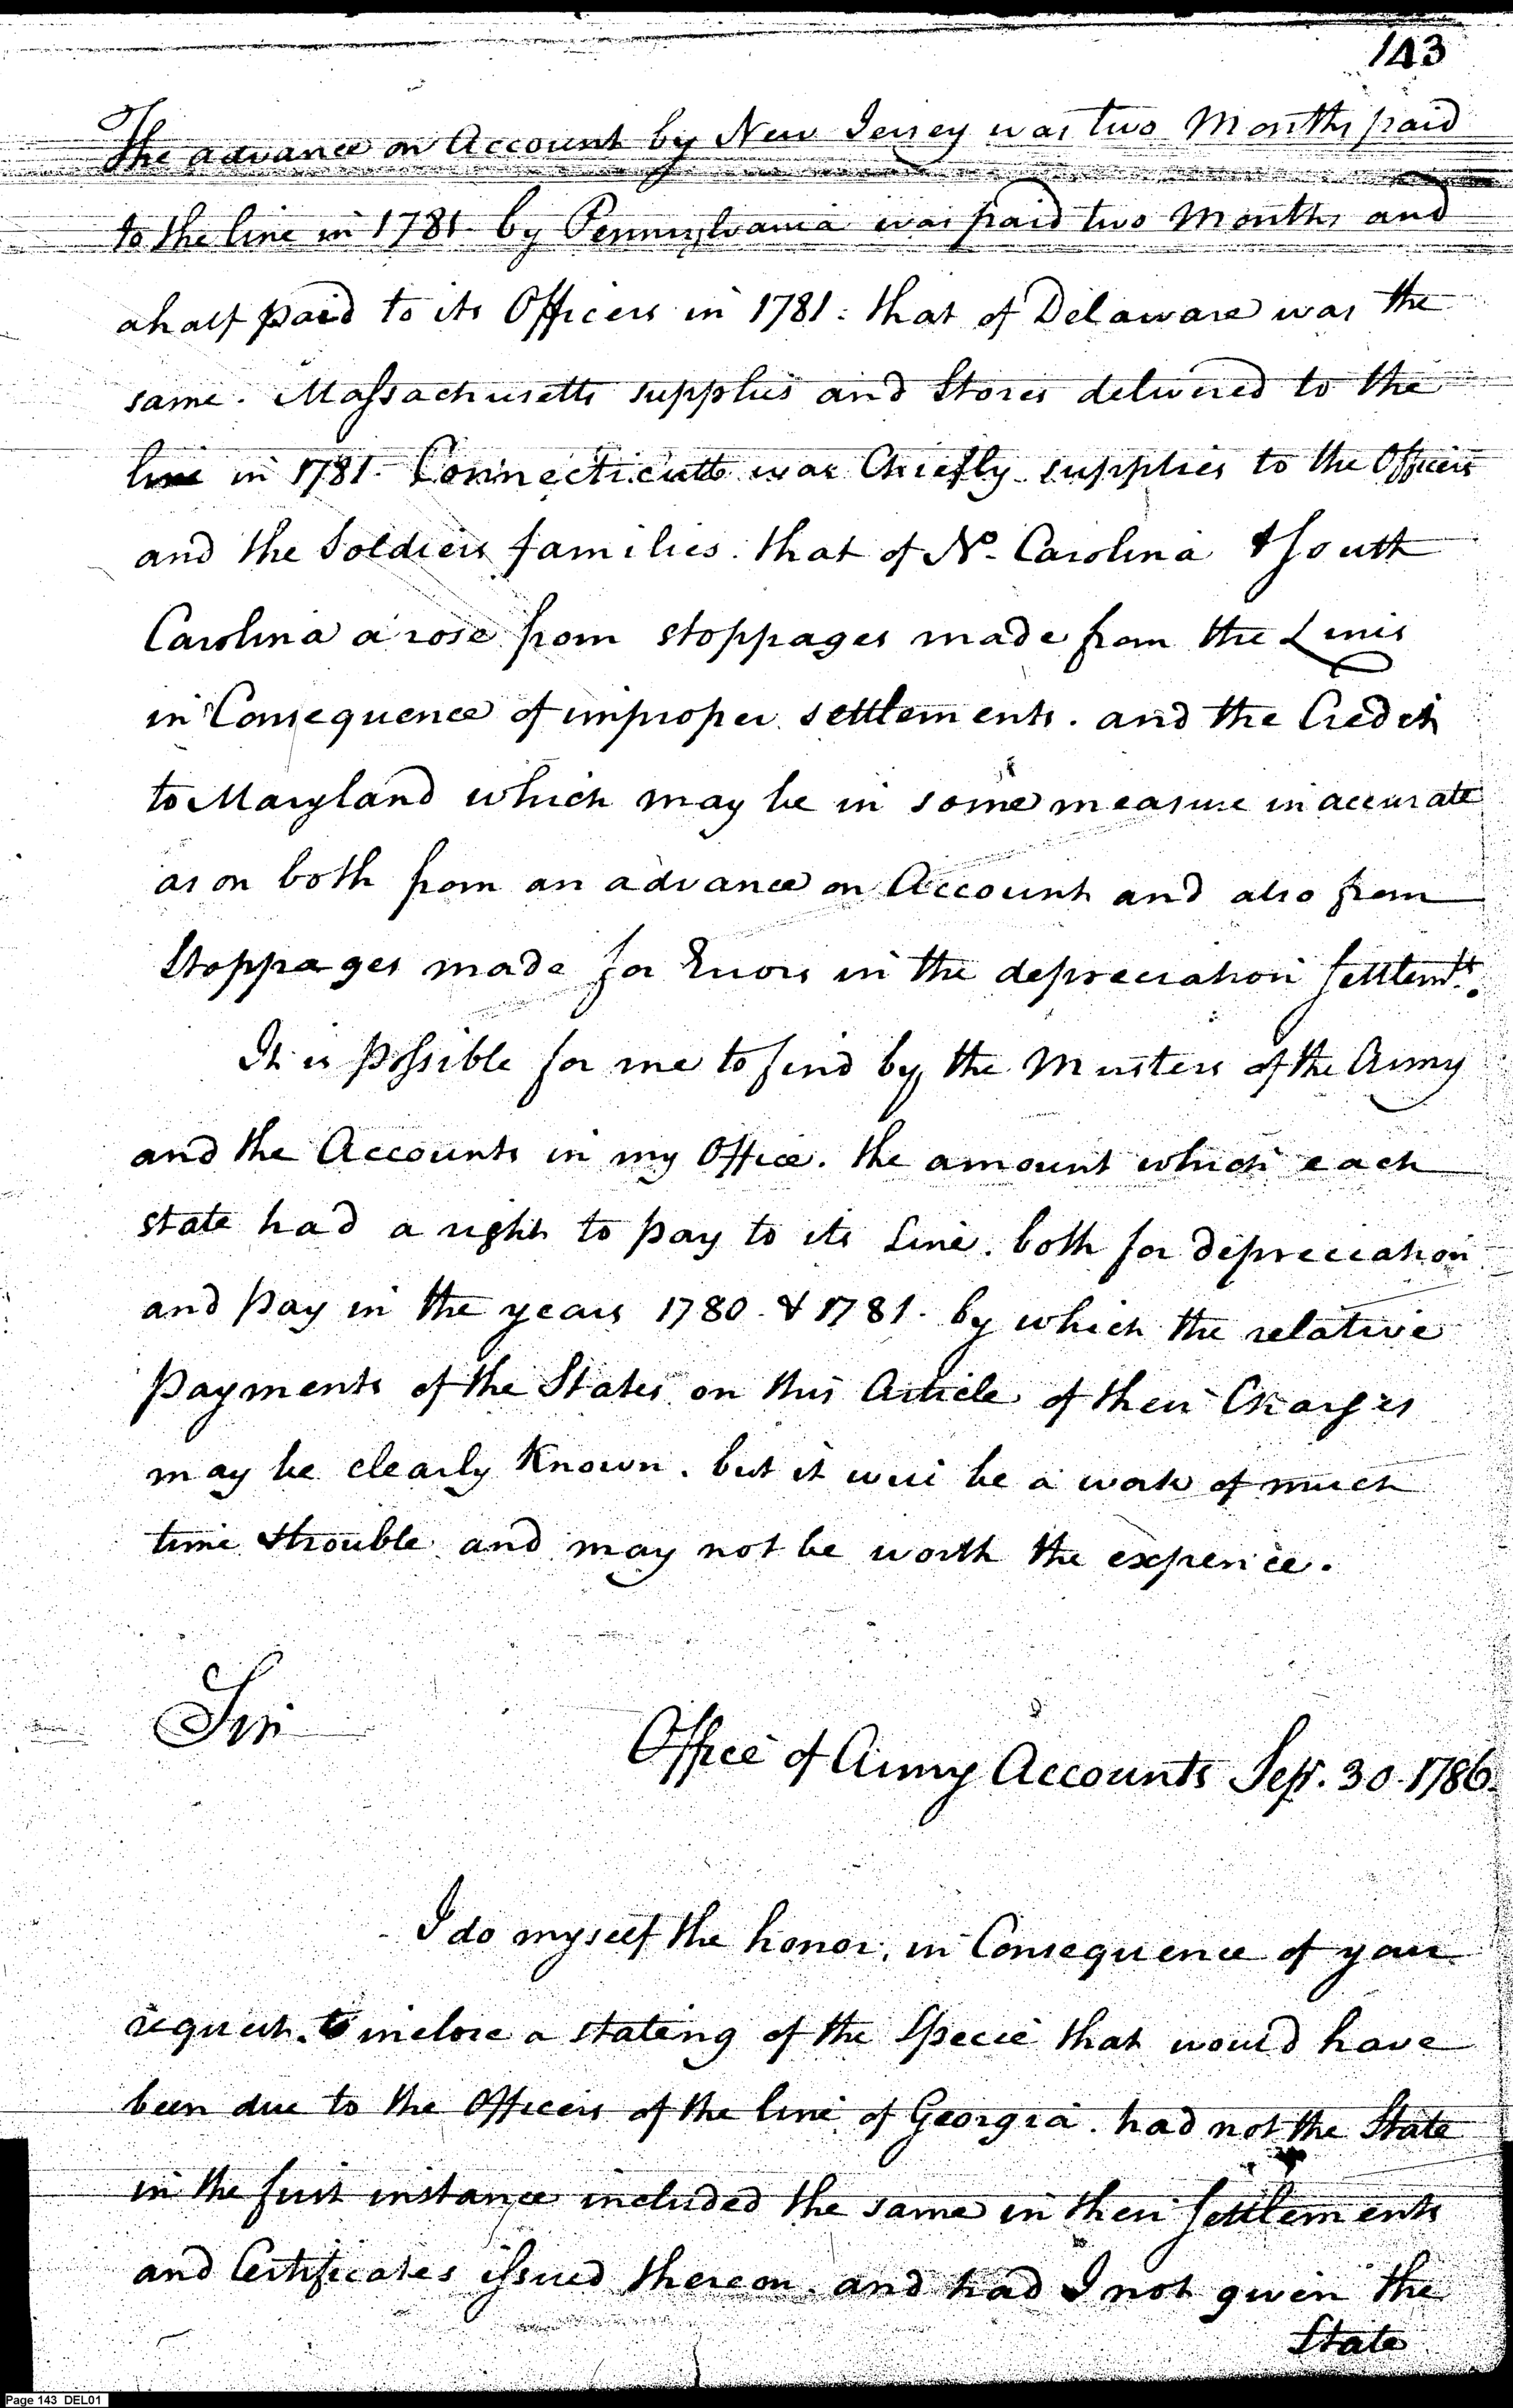 143
The advance on Account by New Jersey was two Months paid
to the line in 1781. by Pennsylvania was paid two Months and
a half paid to its Officers in 1781: that of Delaware was the
same. Massachusetts supplies and Stores delivered to the
line in 1781. Connecticutt was Chiefly supplies to the Officers
and the Soldiers families. that of No. Carolina & South
Carolina a rose from stoppages made from the Lines
in Consequence of improper settlements. and the Credit
to Maryland which may be in some measure inaccurate
as on both from an advance on Account and also from
Stoppages made for Errors in the depreciation Settlemts.
It is possible for me to find by the Musters of the Army
and the Accounts in my Office. the amount which each
state had a right to pay to its Line. both for depreciation
and pay in the years 1780. & 1781. by which the relative
payments of the States on this Article of their Charges
may be clearly Known. but it will be a work of much
time & trouble and may not be worth the expence.
Sir
Office of Army Accounts Sepr. 30. 1786.
I do myself the honor, in Consequence of your
request. to inclose a stating of the Specie that would have
been due to the Officers of the line of Georgia. had not the State
in the first instance included the same in their Settlements
and Certificates issued thereon. and had I not given the
State
Page 143 DEL01